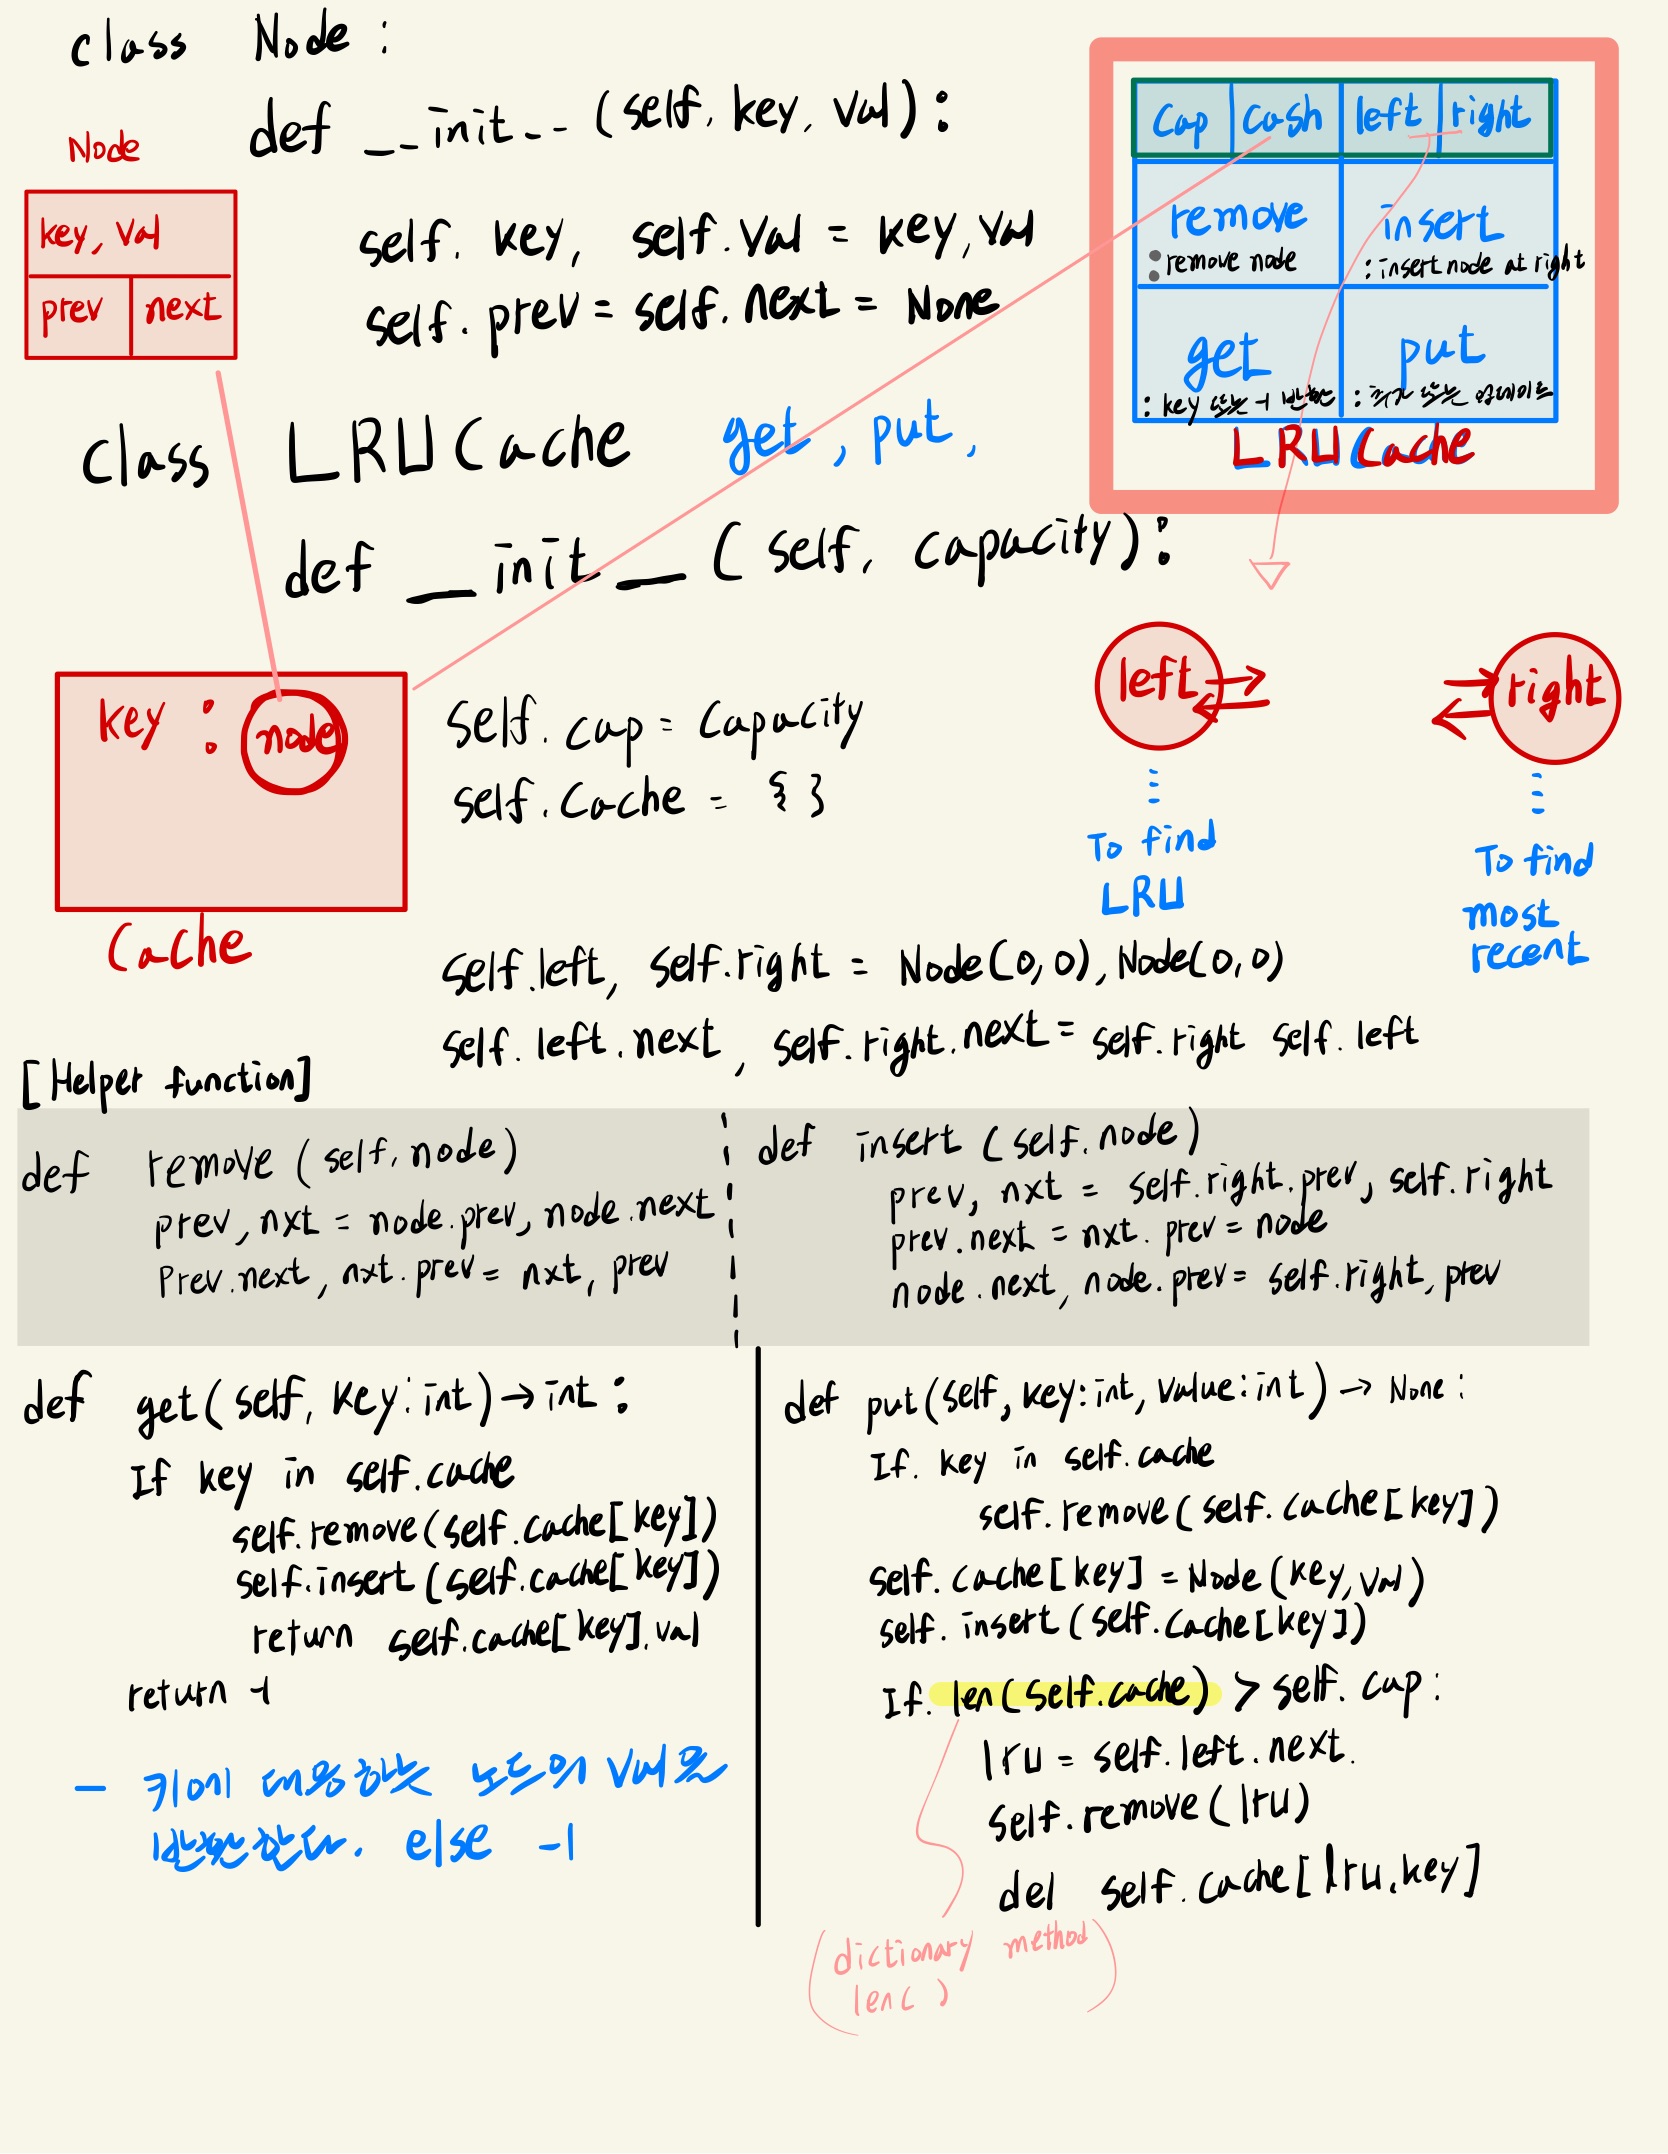 class Node :
def __init__ (self, key, val) :
Node
key, val
prev next
self. key, self.val = key, val
self. prev = self. next = None
cap cash left right
remove
: remove node
insert
: insert node at right
get
: key 또는 -1 반환
put
: 추가 또는 업데이트
LRU Cache
class LRU Cache get, put,
def __init__ (self, capacity) :
key : node
Cache
self. cap = capacity
self. Cache = { }
left
right
To find
LRU
To find
most
recent
self.left, self.right = Node(0,0), Node(0,0)
self. left. next, self. right. next = self. right self. left
[Helper function]
def remove (self, node)
prev, nxt = node.prev, node.next
Prev.next, nxt.prev = nxt, prev
def insert (self. node)
prev, nxt = self.right.prev, self.right
prev.next = nxt. prev = node
node.next, node.prev = self.right, prev
def get(self, key:int) → int :
If key in self.cache
self.remove(self.cache[key])
self.insert(self.cache[key])
return self.cache[key].val
return -1
- 키에 대응하는 노드의 val을
반환한다. else -1
def put(self, key:int, value:int) → None :
If. key in self.cache
self.remove(self.cache[key])
self.cache[key] = Node(key, val)
self.insert(self.cache[key])
If. len(self.cache) > self. cap :
lru = self.left.next.
self.remove(lru)
del self.cache[lru.key]
(dictionary method
len( ) )